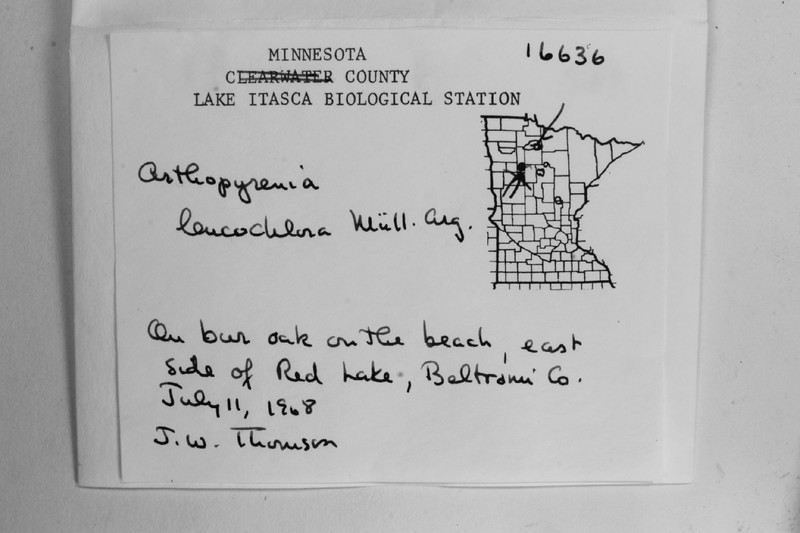 MINNESOTA
16636
CLEARWATER COUNTY
LAKE ITASCA BIOLOGICAL STATION
Arthopyrenia
leucochlora Müll. Arg.
On bur oak on the beach, east
side of Red Lake, Beltrami Co.
July 11, 1968
J.W. Thomson